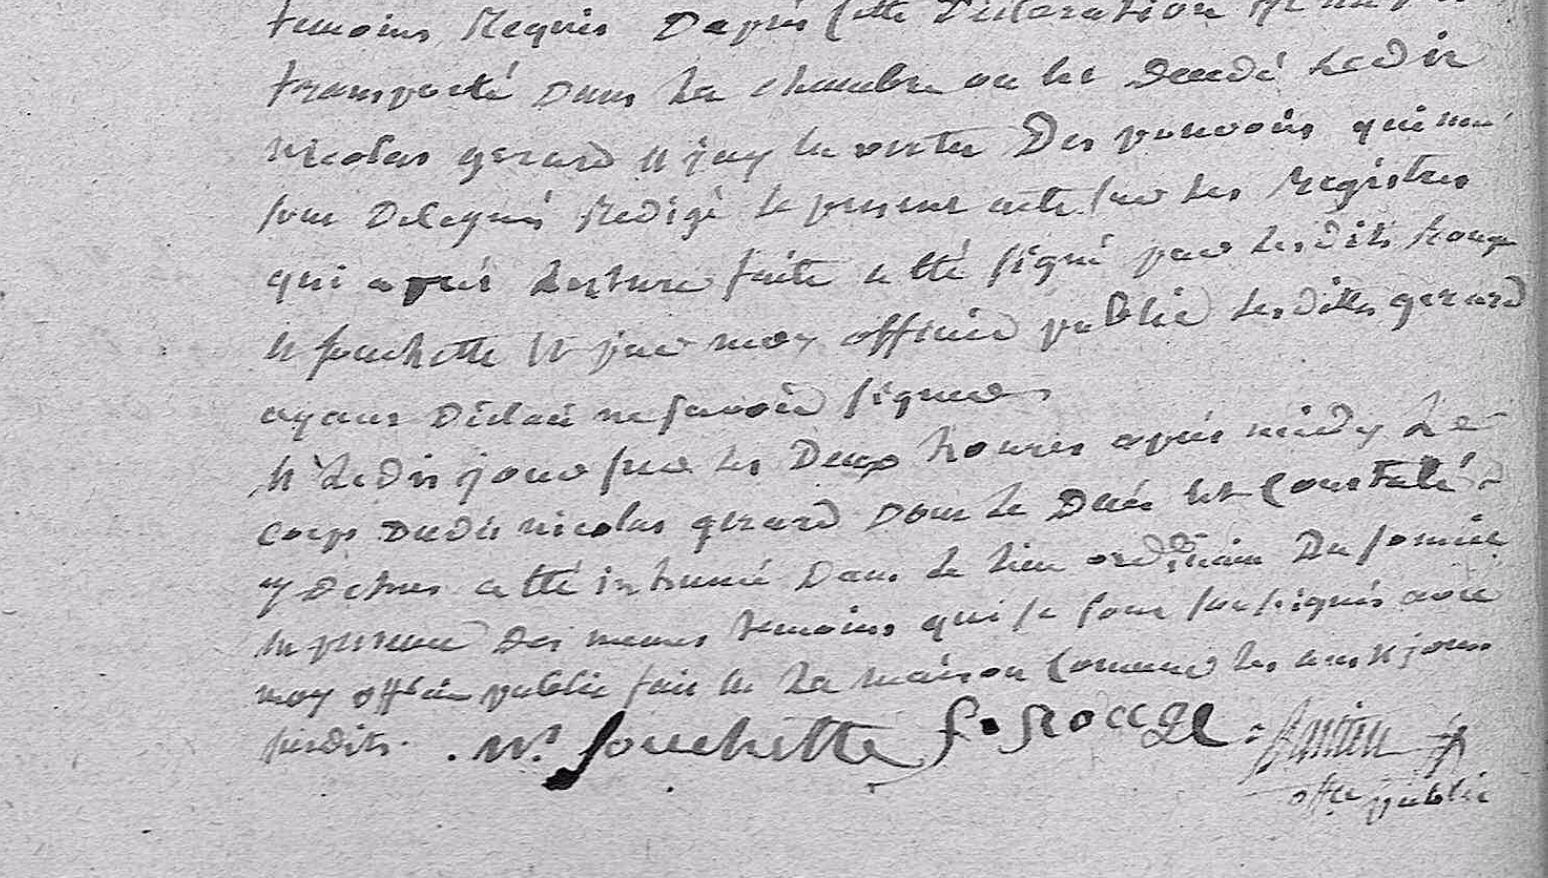 temoins Requis Dapres Cette Declaration
transporté Dans La chambre ou est Decedé Ledit
nicolas gerard jay En vertu Des pouvoirs qui me
sont Delegués Redigé Le present acte sur Les Registres
qui après Lecture faite a eté signé par Lesdits Rouge
et souchette Et par moy officier public Lesdits gerard
ayant Declaré ne savoir signer
Et Ledit jour sur Les Deux heures après midy Le
corps Dudit nicolas gerard Dont Le Decés est Constaté
cy Dessus a eté inhumé Dans Le lieu ordinaire
En presence Des memes temoins qui se sont soussignés avec
moy officier public fait En La maison Comune Les an et jour
susdits. N. Souchette f. Rouge
offier public